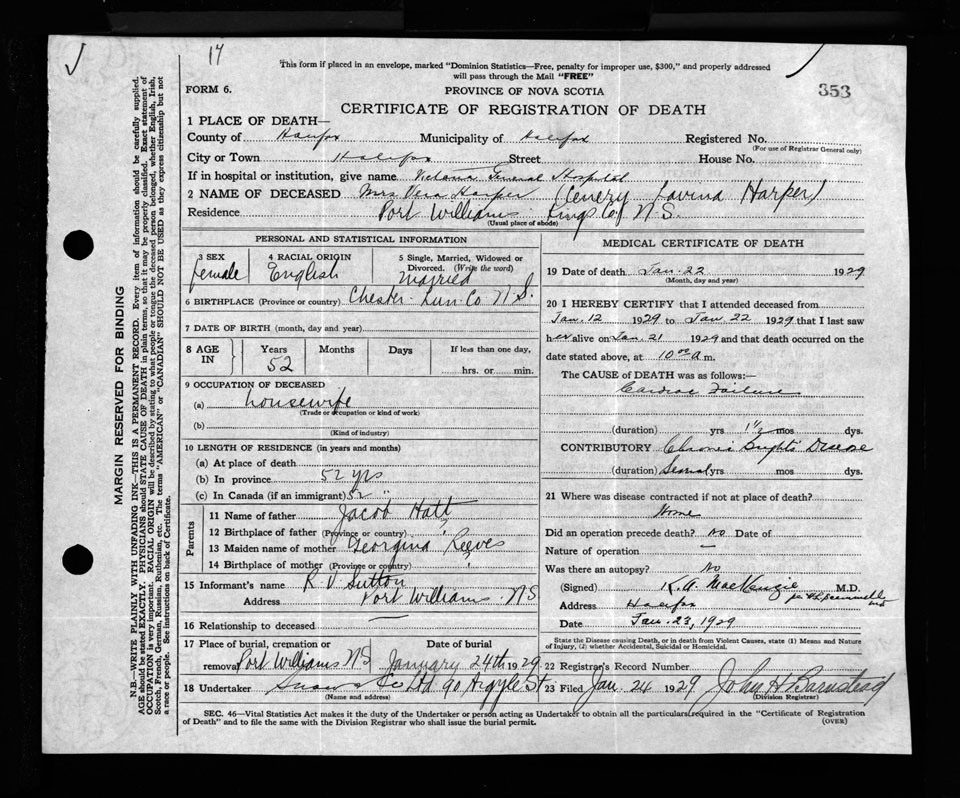 17
This form if placed in an envelope, marked "Dominion Statistics—Free, penalty for improper use, $300," and properly addressed
will pass through the Mail "FREE"
353
FORM 6.
PROVINCE OF NOVA SCOTIA
CERTIFICATE OF REGISTRATION OF DEATH
1 PLACE OF DEATH—
County of Halifax Municipality of Halifax Registered No.
(For use of Registrar General only)
City or Town Halifax Street House No.
If in hospital or institution, give name Victoria General Hospital
2 NAME OF DECEASED Mrs Vera Harper (Lavina Harper)
Residence Port Williams Kings Co. N.S.
(Usual place of abode)
PERSONAL AND STATISTICAL INFORMATION
3 SEX female
4 RACIAL ORIGIN English
5 Single, Married, Widowed or
Divorced. (Write the word)
Married
6 BIRTHPLACE (Province or country) Chester Lun. Co N.S.
7 DATE OF BIRTH (month, day and year)
8 AGE IN
Years 52
Months
Days
If less than one day,
hrs. or min.
9 OCCUPATION OF DECEASED
(a) housewife
(Trade or occupation or kind of work)
(b)
(Kind of industry)
10 LENGTH OF RESIDENCE (in years and months)
(a) At place of death
(b) In province 52 yrs
(c) In Canada (if an immigrant) 52 "
Parents
11 Name of father Jacob Hatt
12 Birthplace of father (Province or country)
13 Maiden name of mother Georgina Reeves
14 Birthplace of mother (Province or country)
15 Informant's name R V Sutton
Address Port Williams NS
16 Relationship to deceased —
17 Place of burial, cremation or
removal Port Williams NS
Date of burial
January 24th 1929
18 Undertaker Snow & Co Ltd 90 Argyle St
(Name and address)
MEDICAL CERTIFICATE OF DEATH
19 Date of death Jan. 22 1929
(Month, day and year)
20 I HEREBY CERTIFY that I attended deceased from
Jan. 12 1929 to Jan. 22 1929 that I last saw
her alive on Jan. 21 1929 and that death occurred on the
date stated above, at 10 00 a m.
The CAUSE of DEATH was as follows:—
Cardiac Failure
(duration) yrs mos dys.
CONTRIBUTORY Chronic Bright's Disease
(duration) Several yrs. mos dys.
21 Where was disease contracted if not at place of death?
Home
Did an operation precede death? No Date of
Nature of operation —
Was there an autopsy? No
(Signed) K.A. MacKenzie M.D.
Address Halifax
Date Jan. 23, 1929
State the Disease causing Death, or in death from Violent Causes, state (1) Means and Nature
of Injury, (2) whether Accidental, Suicidal or Homicidal.
22 Registrar's Record Number
23 Filed Jan. 24 1929 John H Barnstead
(Division Registrar)
SEC. 46—Vital Statistics Act makes it the duty of the Undertaker or person acting as Undertaker to obtain all the particulars required in the "Certificate of Registration
of Death" and to file the same with the Division Registrar who shall issue the burial permit.
(OVER)
MARGIN RESERVED FOR BINDING
N.B.—WRITE PLAINLY WITH UNFADING INK—THIS IS A PERMANENT RECORD. Every item of information should be carefully supplied.
AGE should be stated EXACTLY. PHYSICIANS should STATE CAUSE OF DEATH in plain terms, so that it may be properly classified. Exact statement of
OCCUPATION is very important. RACIAL ORIGIN will be described by stating to what people or tongue the deceased person belonged, whether English, Irish,
Scotch, French, German, Russian, Ruthenian, etc. The terms "AMERICAN" or "CANADIAN" SHOULD NOT BE USED as they express citizenship but not
a race or people. See instructions on back of Certificate.